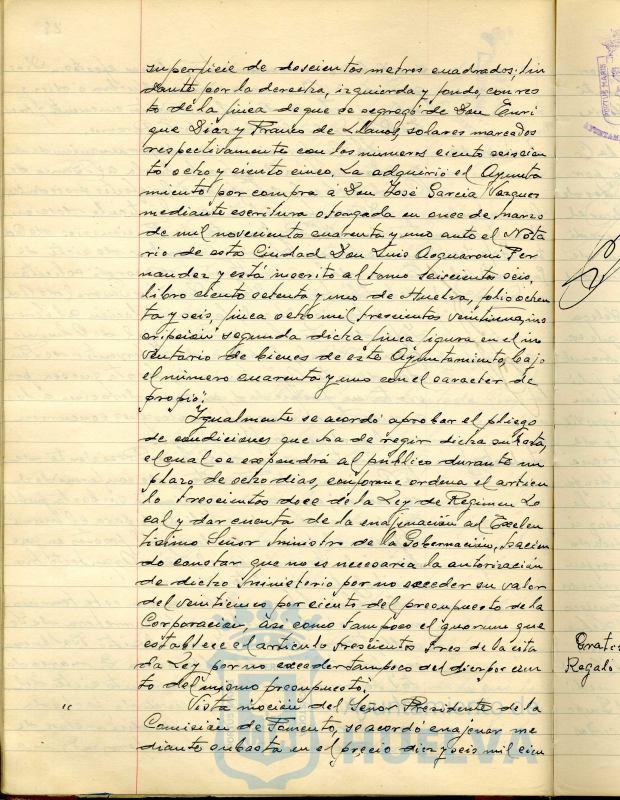 superficie de doscientos metros cuadrados; lin
dante por la derecha, izquierda y fondo, con res
to de la finca de que se segregó de Don Enri
que Diaz y Franco de Llanos, solares marcados
respectivamente con los números ciento seiscien
to ocho y ciento cinco. La adquirió el Ayunta
miento por compra a Don José García Vazquez
mediante escritura otorgada en once de marzo
de mil novecientos cuarenta y uno ante el Nota
rio de esta Ciudad Don Luis Acquaroni Fer
nandez y está inscrito al tomo seiscientos seis,
libro ciento setenta y uno de Huelva, folio ochen
ta y seis, finca ocho mil trescientos veintiuna, ins
cripción segunda dicha finca figura en el in
ventario de bienes de este Ayuntamiento, bajo
el número cuarenta y uno con el caracter de
propio".
Igualmente se acordó aprobar el pliego
de condiciones que ha de regir dicha subasta,
el cual se expondrá al público durante un
plazo de ocho dias, conforme ordena el articu
lo trescientos doce de la Ley de Regimen Lo
cal y dar cuenta de la enajenación al Excelen
tisimo Señor Ministro de la Gobernación, hacien
do constar que no es necesaria la autorización
de dicho Ministerio por no exceder su valor
del veinticinco por ciento del presupuesto de la
Corporación, así como tampoco el quorum que
establece el articulo trescientos tres de la cita
da Ley por no exceder tampoco del diez por cien
to del mismo presupuesto.
"
Vista moción del Señor Presidente de la
Comisión de Fomento, se acordó enajenar me
diante subasta en el precio diez y seis mil cien
Regalo
HUELVA